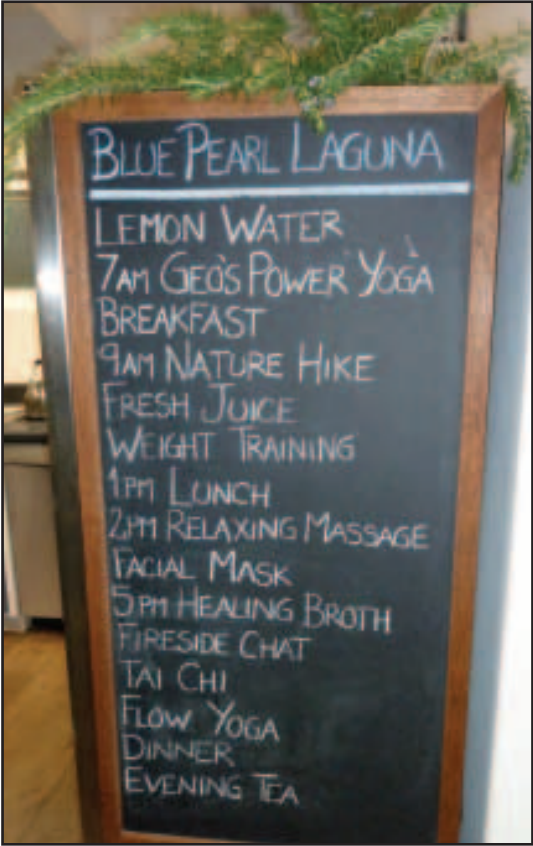 BLUE PEARL LAGUNA
LEMON WATER
7AM GEO'S POWER YOGA
BREAKFAST
9AM NATURE HIKE
FRESH JUICE
WEIGHT TRAINING
1PM LUNCH
2PM RELAXING MASSAGE
FACIAL MASK
5PM HEALING BROTH
FIRESIDE CHAT
TAI CHI
FLOW YOGA
DINNER
EVENING TEA